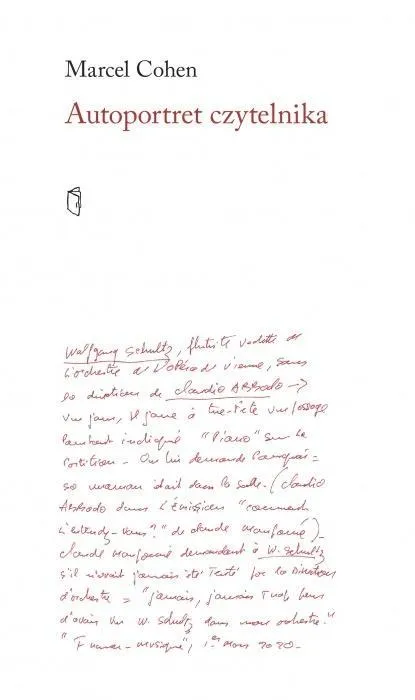 Marcel Cohen
Autoportret czytelnika
Wolfgang Schultz, flûtiste vedette de
l'orchestre de l'Opéra de Vienne, sous
la direction de Claudio Abbado →
un jour, il joue à tue-tête un passage
pourtant indiqué "Piano" sur la
partition - On lui demande pourquoi =
sa maman était dans la salle - (Claudio
Abbado dans l'émission "comment
l'entendez-vous?" de Claude Maupomé) -
Claude Maupomé demandant à W. Schultz
s'il n'avait jamais été tenté par la direction
d'orchestre = "jamais, jamais trop peur
d'avoir un W. Schultz dans mon orchestre."
"France-musique", 1er mars 2020 -